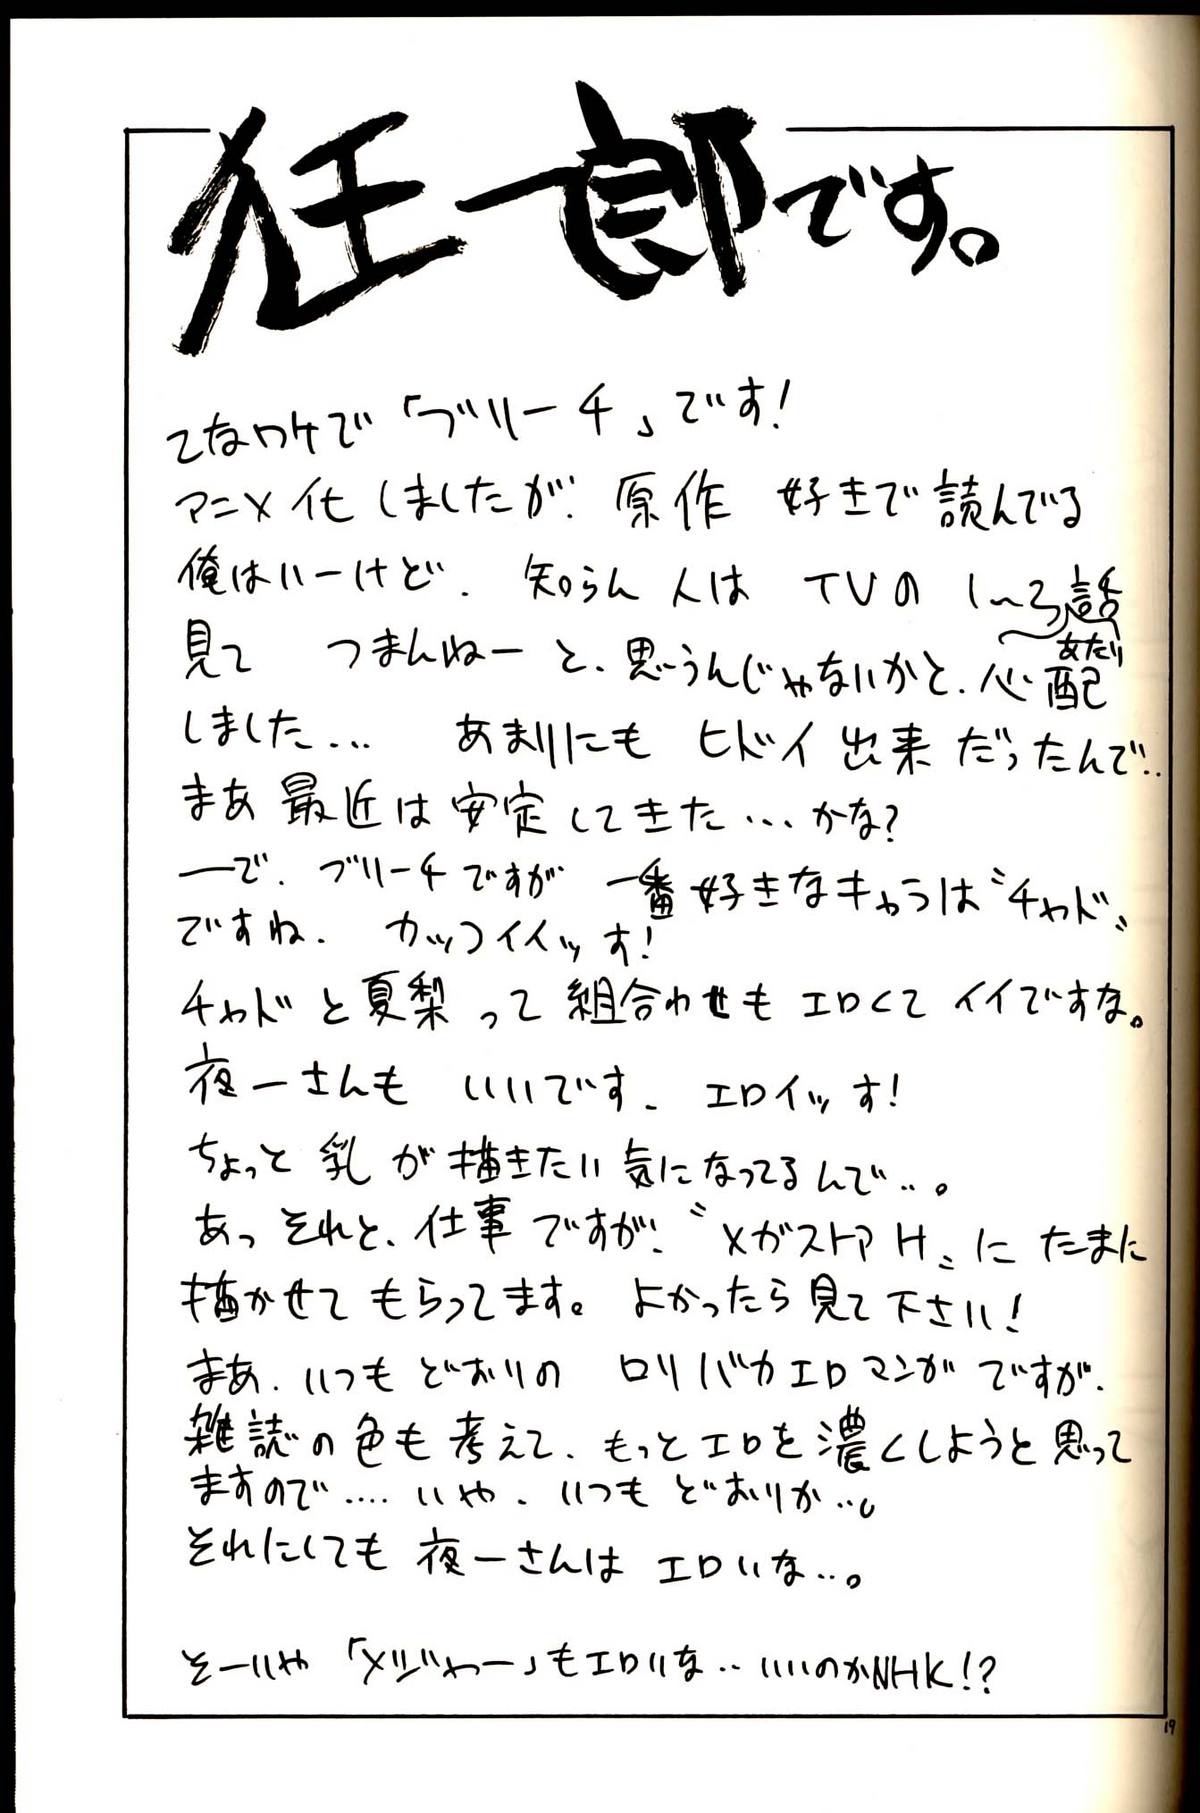 狂一郎です。
てなワケで「ブリーチ」です!
アニメ化しましたが、原作 好きで読んでる
俺はいーけど、知らん人は TVの 1〜3話あたり
見て つまんねーと、思うんじゃないかと、心配
しました... あまりにも ヒドイ出来だったんで..
まあ最近は安定してきた...かな?
ーで、ブリーチですが 一番好きなキャラは〝チャド〟
ですね、カッコイイッす!
チャドと夏梨って組合わせもエロくてイイですな。
夜一さんも いいです、エロイッす!
ちょっと乳が描きたい気になってるんで..。
あっそれと、仕事ですが、〝メガストアH〟に たまに
描かせてもらってます。よかったら見て下さい!
まあ、いつもどおりの ロリバカエロマンガですが、
雑誌の色も考えて、もっとエロを濃くしようと思って
ますので....いや、いつもどおりか..。
それにしても夜一さんは エロいな..。
そーいや「メジャー」もエロいな.. いいのかNHK!?
19